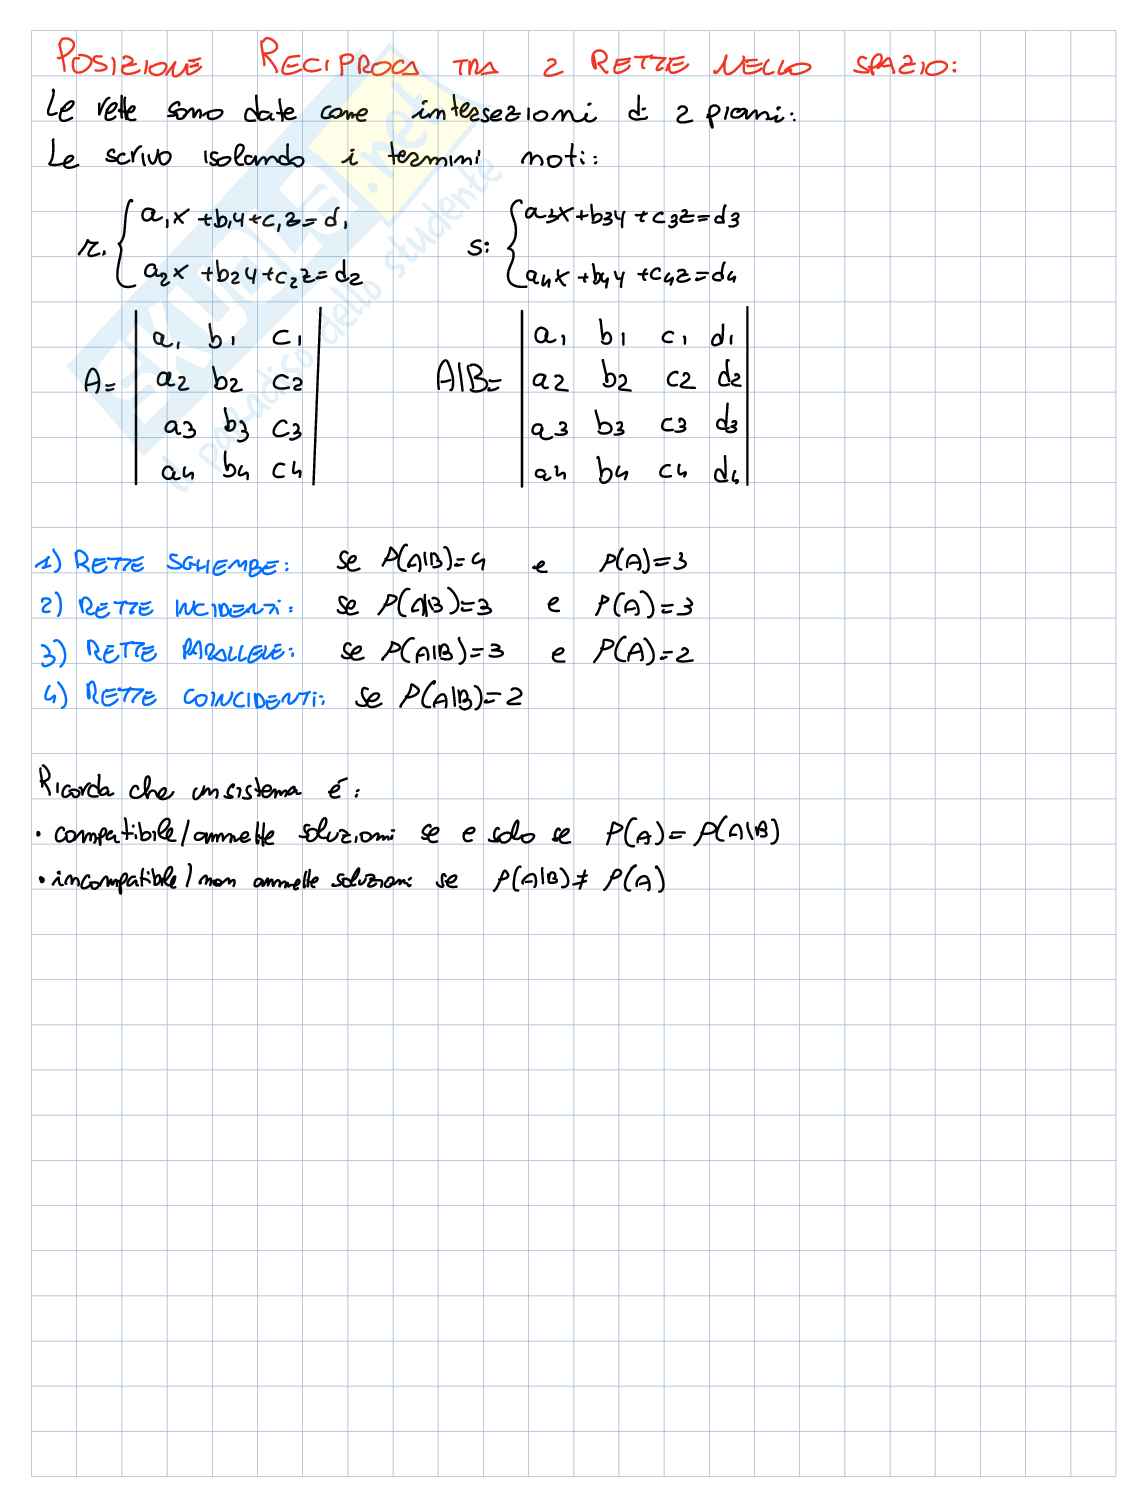 POSIZIONE RECIPROCA TRA 2 RETTE NELLO SPAZIO:
Le rette sono date come intersezioni di 2 piani:
Le scrivo isolando i termini noti:
r: { a₁x + b₁y + c₁z = d₁
a₂x + b₂y + c₂z = d₂
s: { a₃x + b₃y + c₃z = d₃
a₄x + b₄y + c₄z = d₄
A = | a₁ b₁ c₁ |
| a₂ b₂ c₂ |
| a₃ b₃ c₃ |
| a₄ b₄ c₄ |
A|B = | a₁ b₁ c₁ d₁ |
| a₂ b₂ c₂ d₂ |
| a₃ b₃ c₃ d₃ |
| a₄ b₄ c₄ d₄ |
1) RETTE SGHEMBE: se ρ(A|B)=4 e ρ(A)=3
2) RETTE INCIDENTI: se ρ(A|B)=3 e ρ(A)=3
3) RETTE PARALLELE: se ρ(A|B)=3 e ρ(A)=2
4) RETTE COINCIDENTI: se ρ(A|B)=2
Ricorda che un sistema é:
• compatibile/ammette soluzioni se e solo se ρ(A) = ρ(A|B)
• incompatibile/non ammette soluzioni se ρ(A|B) ≠ ρ(A)
SKUOLA.net
il paradiso dello studente